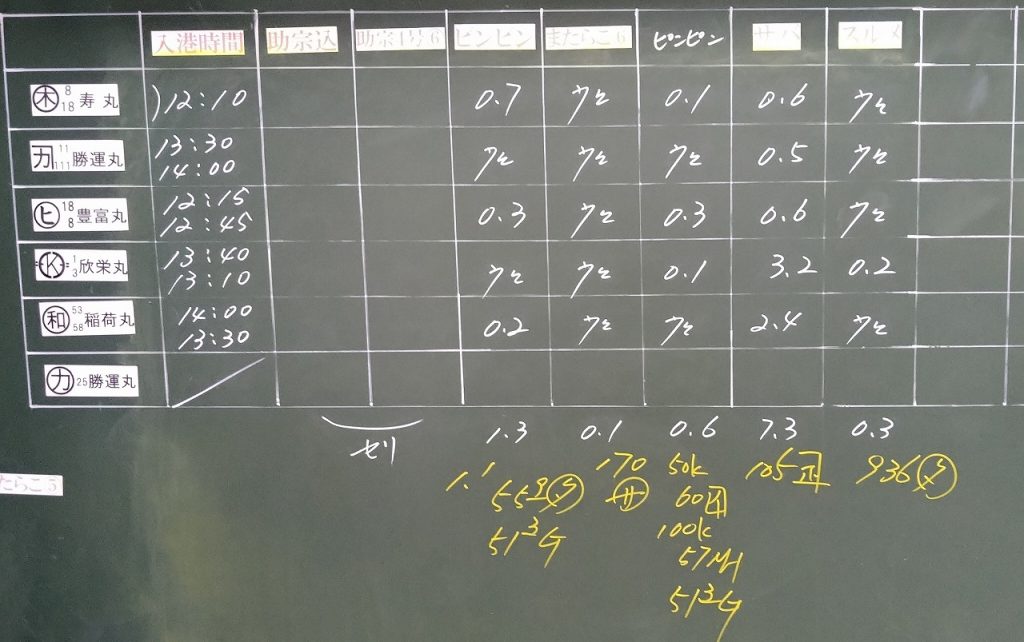 入港時間 助宗込 ピンピン またらこ6 ピンピン サバ スルメ
木 8 18 寿丸 12:10 0.7 ウヒ 0.1 0.6 ウヒ
カ 11 111 勝運丸 13:30 14:00 ウヒ ウヒ ウヒ 0.5 ウヒ
ヒ 18 8 豊富丸 12:15 12:45 0.3 ウヒ 0.3 0.6 ウヒ
K 1 3 欣栄丸 13:40 13:10 ウヒ ウヒ 0.1 3.2 0.2
和 53 58 稲荷丸 14:00 13:30 0.2 ウヒ ウヒ 2.4 ウヒ
カ 25 勝運丸
セリ 1.3 0.1 0.6 7.3 0.3
170 50k 105 936
たらこ5 サ 60
100k
57